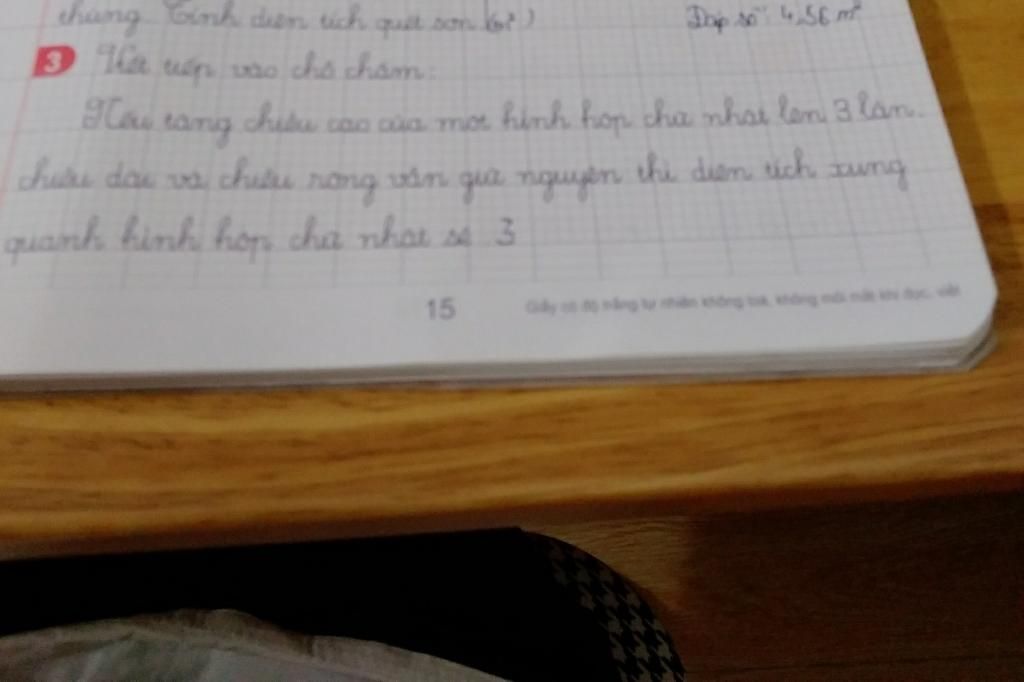 thùng. Tính diện tích quét sơn (m²)
Đáp số: 4,56 m²
3 Viết tiếp vào chỗ chấm:
Nếu tăng chiều cao của một hình hộp chữ nhật lên 3 lần.
chiều dài và chiều rộng vẫn giữ nguyên thì diện tích xung
quanh hình hộp chữ nhật sẽ 3
15
Giấy có độ trắng tự nhiên không loá, không mỏi mắt khi đọc, viết